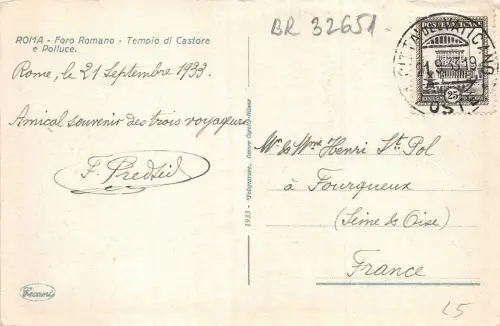 ROMA - Foro Romano - Tempio di Castore
e Polluce.
BR 32651
Rome, le 21 Septembre 1933.
Amical souvenir des trois voyageurs
POSTE VATICANE
CITTÀ DEL VATICANO
POSTE
25
1933 -
Mr & Mme Henri St Pol
à Fourqueux
(Seine & Oise)
France
Cecami
L5